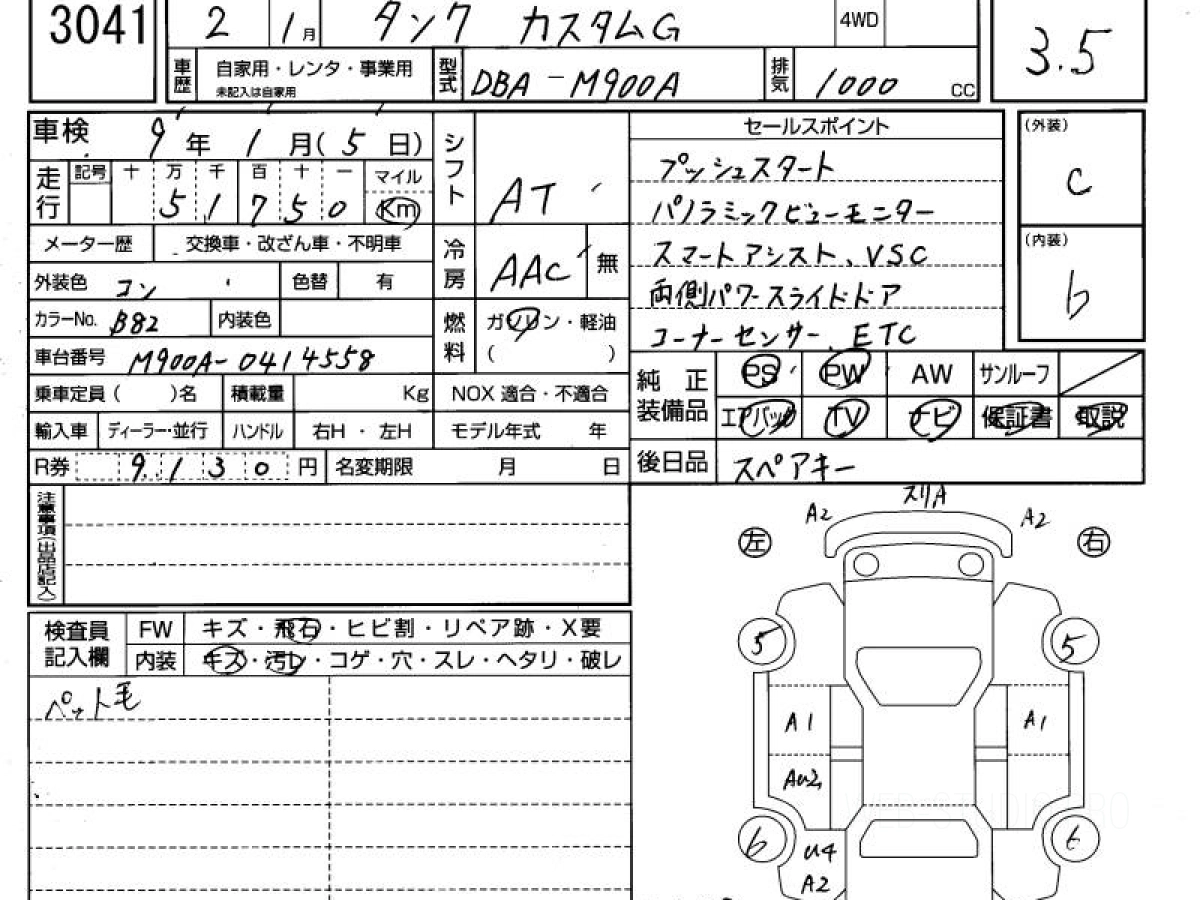 3041
2 1月 タンク カスタムG 4WD
3.5
車歴 自家用・レンタ・事業用 未記入は自家用 型式 DBA-M900A 排気 1000 CC
車検 9年 1月(5日)
シフト AT
セールスポイント
プッシュスタート
パノラミックビューモニター
スマートアシスト、VSC
両側パワースライドドア
コーナーセンサー、ETC
(外装)
C
(内装)
b
走行 記号 十 万 千 百 十 一 マイル
5 1 7 5 0 Km
メーター歴 交換車・改ざん車・不明車
冷房 AAC 無
外装色 コン 色替 有
カラーNo. B82 内装色
燃料 ガソリン・軽油
( )
車台番号 M900A-0414558
乗車定員( )名 積載量 Kg NOX 適合・不適合
純正装備品 PS PW AW サンルーフ
エアバック TV ナビ 保証書 取説
輸入車 ディーラー・並行 ハンドル 右H・左H モデル年式 年
R券 9.130円 名変期限 月 日
後日品 スペアキー
注意事項(出品店記入)
検査員記入欄 FW キズ・飛石・ヒビ割・リペア跡・X要
内装 キズ・汚レ・コゲ・穴・スレ・ヘタリ・破レ
ペット毛
スリA
A2 A2
左 右
5 5
A1 A1
AU2
6 6
U4
A2